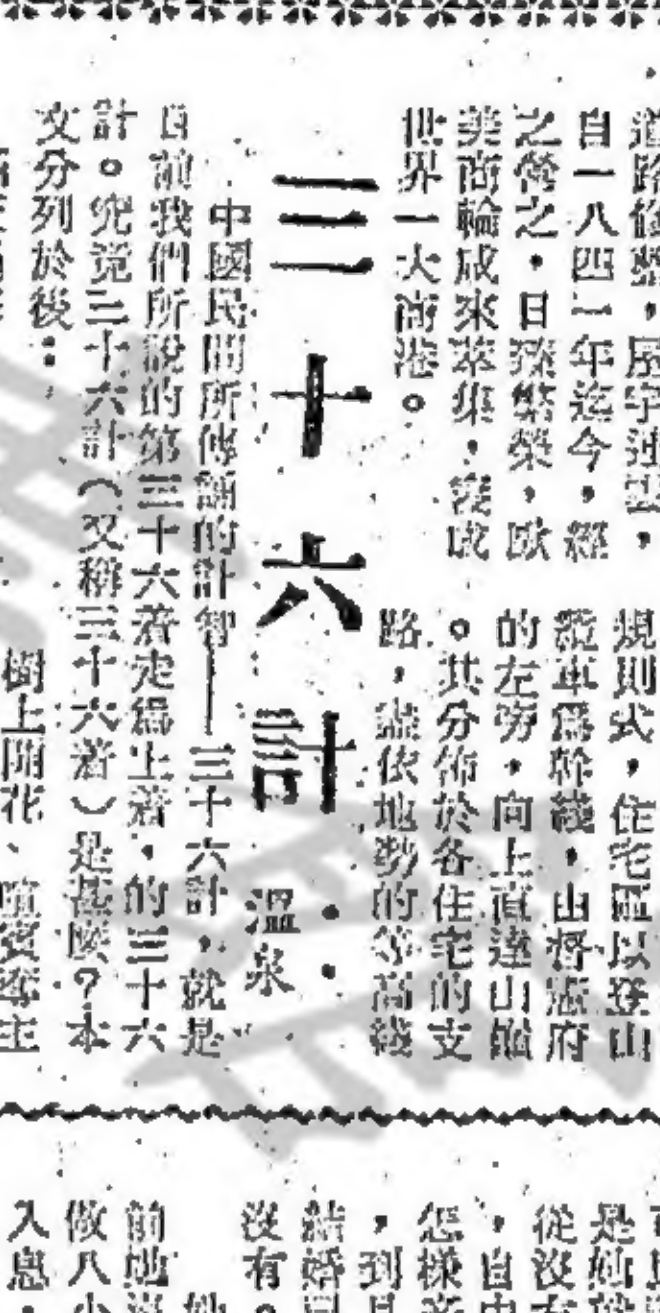 道路修整,屋宇連雲,
自一八四一年迄今,經
之營之,日臻繁榮,歐
美商輪咸來萃集,蔚成
世界一大商港。
規則式,住宅區以登山
纜車為幹綫,山督憲府
的左旁,向上直達山巔
。其分佈於各住宅的支
路,盡依地勢的等高綫
三十六計
溫泉
中國民間所傳誦的計智——三十六計,就是
日前我們所說的第三十六着走為上着,的三十六
計。究竟三十六計(又稱三十六着)是甚麼?本
文分列於後:
樹上開花、喧賓奪主
是她
從沒有
,自由
怎樣
,到
結婚
沒有。
前她
做八小
入息,